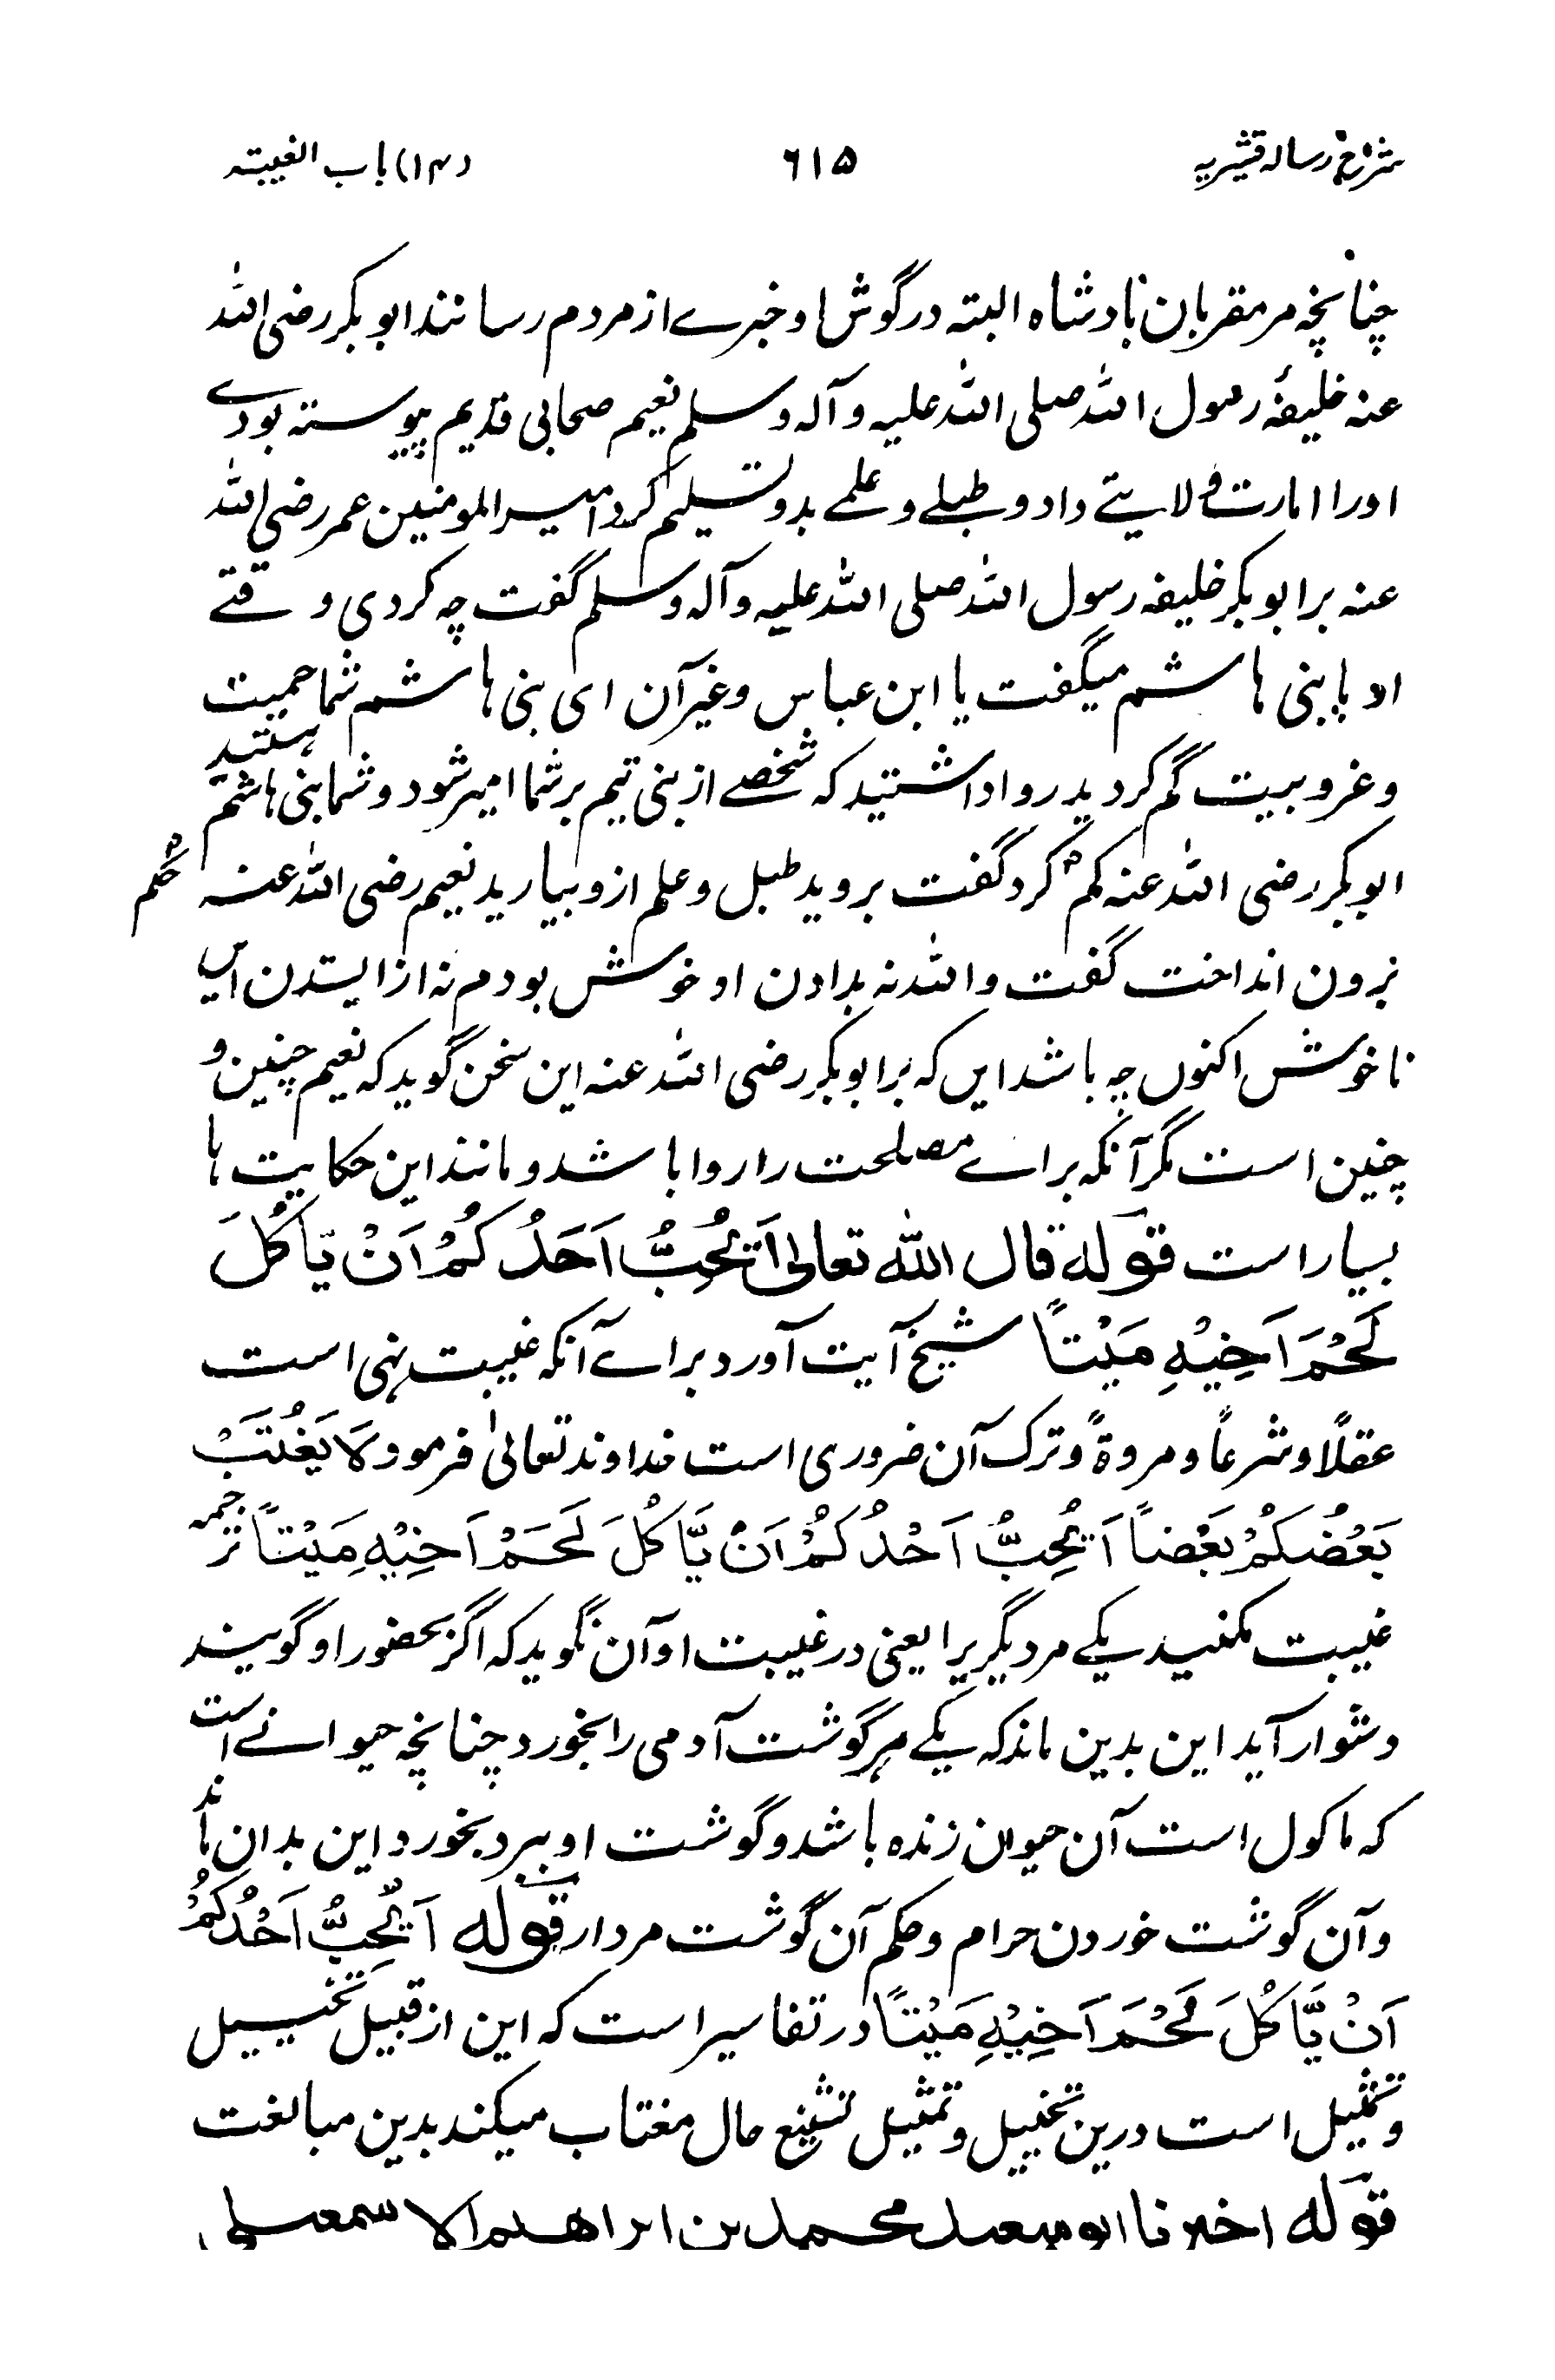 شرح رسالہ قشیریہ ۶۱۵ (۱۴) باب الغیبتہ
چنانچہ مر مقربان بادشاہ البتہ در گوش او خبرے از مردم رسانند ابوبکر رضی اللہ
عنہ خلیفۂ رسول اللہ صلی اللہ علیہ وآلہ وسلم نعیم صحابی قدیم پیوستہ بودے
اورا امارت ولایتے داد و طبلے و علمے بدو تسلیم کرد امیر المومنین عمر رضی اللہ
عنہ برابوبکر خلیفہ رسول اللہ صلی اللہ علیہ وآلہ وسلم گفت چہ کردی وقتے
او با بنی ہاشم میگفت یا ابن عباس وغیر آن ای بنی ہاشم شما حمیت
وغروبیت گم کردید روا داشتید کہ شخصے از بنی تیم برشما امیر شود و شما بنی ہاشم ہستید
ابوبکر رضی اللہ عنہ کم کرد گفت بروید طبل و علم ازو بیارید نعیم رضی اللہ عنہ حکم
برون انداخت گفت واللہ نہ بدادن او خوش بودم نہ از ایستدن این
ناخوش اکنوں چہ باشد ایں کہ برابوبکر رضی اللہ عنہ این سخن گوید کہ نعیم چنین و
چنین است مگر آنکہ براے مصلحت را روا باشد و مانند این حکایت ہا
بسیار است قولہ قال اللہ تعالیٰ اَیُحِبُّ اَحَدُکُمْ اَنْ یَّاکُلَ
لَحْمَ اَخِیْہِ مَیْتاً شیخ آیت آورد براے آنکہ غیبت نہی است
عقلاً و شرعاً و مروۃً و ترک آن ضروری است خداوند تعالیٰ فرمود وَلَا یَغْتَبْ
بَعْضُکُمْ بَعْضاً اَیُحِبُّ اَحْدُکُمْ اَنْ یَّاکُلَ لَحَمَ اَخِیْہِ مَیْتاً ترجمہ
غیبت مکنید یکے مر دیگریرا یعنی در غیبت او آن نگوید کہ اگر بحضور او گویند
دشوار آید این بدین ماند کہ یکے مر گوشت آدمی را بخورد چنانچہ حیوانے است
کہ ماکول است آن حیوان زندہ باشد و گوشت او ببرد بخورد این بدان ماند
وآن گوشت خوردن حرام و حکم آن گوشت مردار قولہ اَیُحِبُّ اَحْدُکُمْ
اَنْ یَّاکُلَ لَحْمَ اَخِیْہِ مَیْتاً در تفاسیر است کہ این از قبیل تخییل
وتمثیل است درین تخییل و تمثیل تشنیع حال مغتاب میکند بدین مبالغت
قولہ اخبرنا ابو سعید محمد بن ابراھیم الاسمعیلی